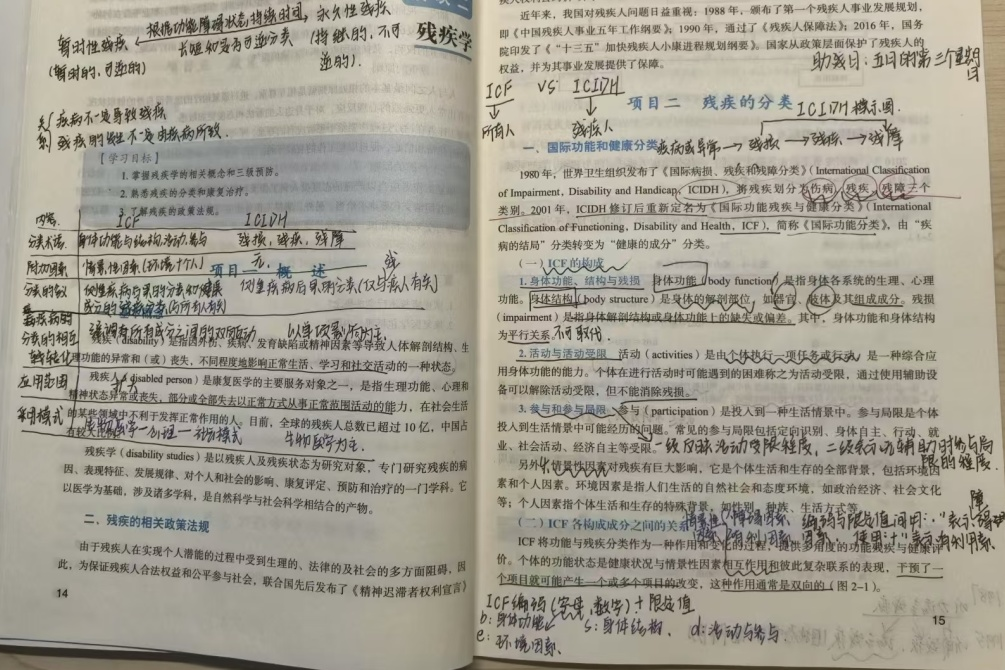 残疾学
暂时性残疾 ← 根据功能障碍状态持续时间, 永久性残疾
(暂时的,可逆的) 长短和是否可逆分类 (持续的,不可逆的).
疾病不一定导致残疾
残疾的发生不一定由疾病所致.
【学习目标】
1. 掌握残疾学的相关概念和三级预防。
2. 熟悉残疾的分类和康复治疗。
3. 了解残疾的政策法规。
内容 ICF ICIDH
分类术语 身体功能与结构,活动,参与 残损,残疾,残障
附加因素 情景性因素(环境+个人) 无
项目一 概述
应用范围
采用模式 生物医学—心理—社会模式 生物医学为主.
残疾(disability)是指因外伤、疾病、发育缺陷或精神因素等导致人体解剖结构、生
理功能的异常和(或)丧失,不同程度地影响正常生活、学习和社交活动的一种状态。
残疾人(disabled person)是康复医学的主要服务对象之一,是指生理功能、心理和
精神状态异常或丧失,部分或全部失去以正常方式从事正常范围活动的能力,在社会生活
的某些领域中不利于发挥正常作用的人。目前,全球的残疾人总数已超过 10 亿,中国占
残疾学(disability studies)是以残疾人及残疾状态为研究对象,专门研究残疾的病
因、表现特征、发展规律、对个人和社会的影响、康复评定、预防和治疗的一门学科。它
以医学为基础,涉及诸多学科,是自然科学与社会科学相结合的产物。
二、残疾的相关政策法规
由于残疾人在实现个人潜能的过程中受到生理的、法律的及社会的多方面阻碍,因
此,为保证残疾人合法权益和公平参与社会,联合国先后发布了《精神迟滞者权利宣言》
14
近年来,我国对残疾人问题日益重视:1988 年,颁布了第一个残疾人事业发展规划,
即《中国残疾人事业五年工作纲要》;1990 年,通过了《残疾人保障法》;2016 年,国务
院印发了《“十三五”加快残疾人小康进程规划纲要》。国家从政策层面保护了残疾人的
权益,并为其事业发展提供了保障。
助残日:五月的第三个星期日
ICF VS ICIDH
所有人 残疾人
项目二 残疾的分类
ICIDH 模示图.
一、国际功能和健康分类
疾病或异常 → 残损 → 残疾 → 残障
1980 年,世界卫生组织发布了《国际病损、残疾和残障分类》(International Classification
of Impairment, Disability and Handicap, ICIDH),将残疾划分为伤病、残疾、残障三个
类别。2001 年,ICIDH 修订后重新定名为《国际功能残疾与健康分类》(International
Classification of Functioning, Disability and Health, ICF),简称《国际功能分类》,由“疾
病的结局”分类转变为“健康的成分”分类。
(一)ICF的构成
1. 身体功能、结构与残损 身体功能(body function)是指身体各系统的生理、心理
功能。身体结构(body structure)是身体的解剖部位,如器官、肢体及其组成成分。残损
(impairment)是指身体解剖结构或身体功能上的缺失或偏差。其中,身体功能和身体结构
为平行关系,不可取代.
2. 活动与活动受限 活动(activities)是由个体执行一项任务或行动,是一种综合应
用身体功能的能力。个体在进行活动时可能遇到的困难称之为活动受限,通过使用辅助设
备可以解除活动受限,但不能消除残损。
3. 参与和参与局限 参与(participation)是投入到一种生活情景中。参与局限是个体
投入到生活情景中可能经历的问题。常见的参与局限包括定向识别、身体自主、行动、就
业、社会活动、经济自主等受限。
另外,情景性因素对残疾有巨大影响,它是个体生活和生存的全部背景,包括环境因
素和个人因素。环境因素是指人们生活的自然社会和态度环境,如政治经济、社会文化
等;个人因素指个体生活和生存的特殊背景,如性别、种族、生活方式等。
(二)ICF 各构成成分之间的关系
ICF 将功能与残疾分类作为一种作用和变化的过程,提供多角度的功能残疾与健康评
价。个体的功能状态是健康状况与情景性因素相互作用和彼此复杂联系的表现,干预了一
个项目就可能产生一个或多个项目的改变,这种作用通常是双向的(图 2-1)。
ICF编码(字母,数字)+限定值
b:身体功能 s:身体结构. d:活动与参与
e:环境因素.
15